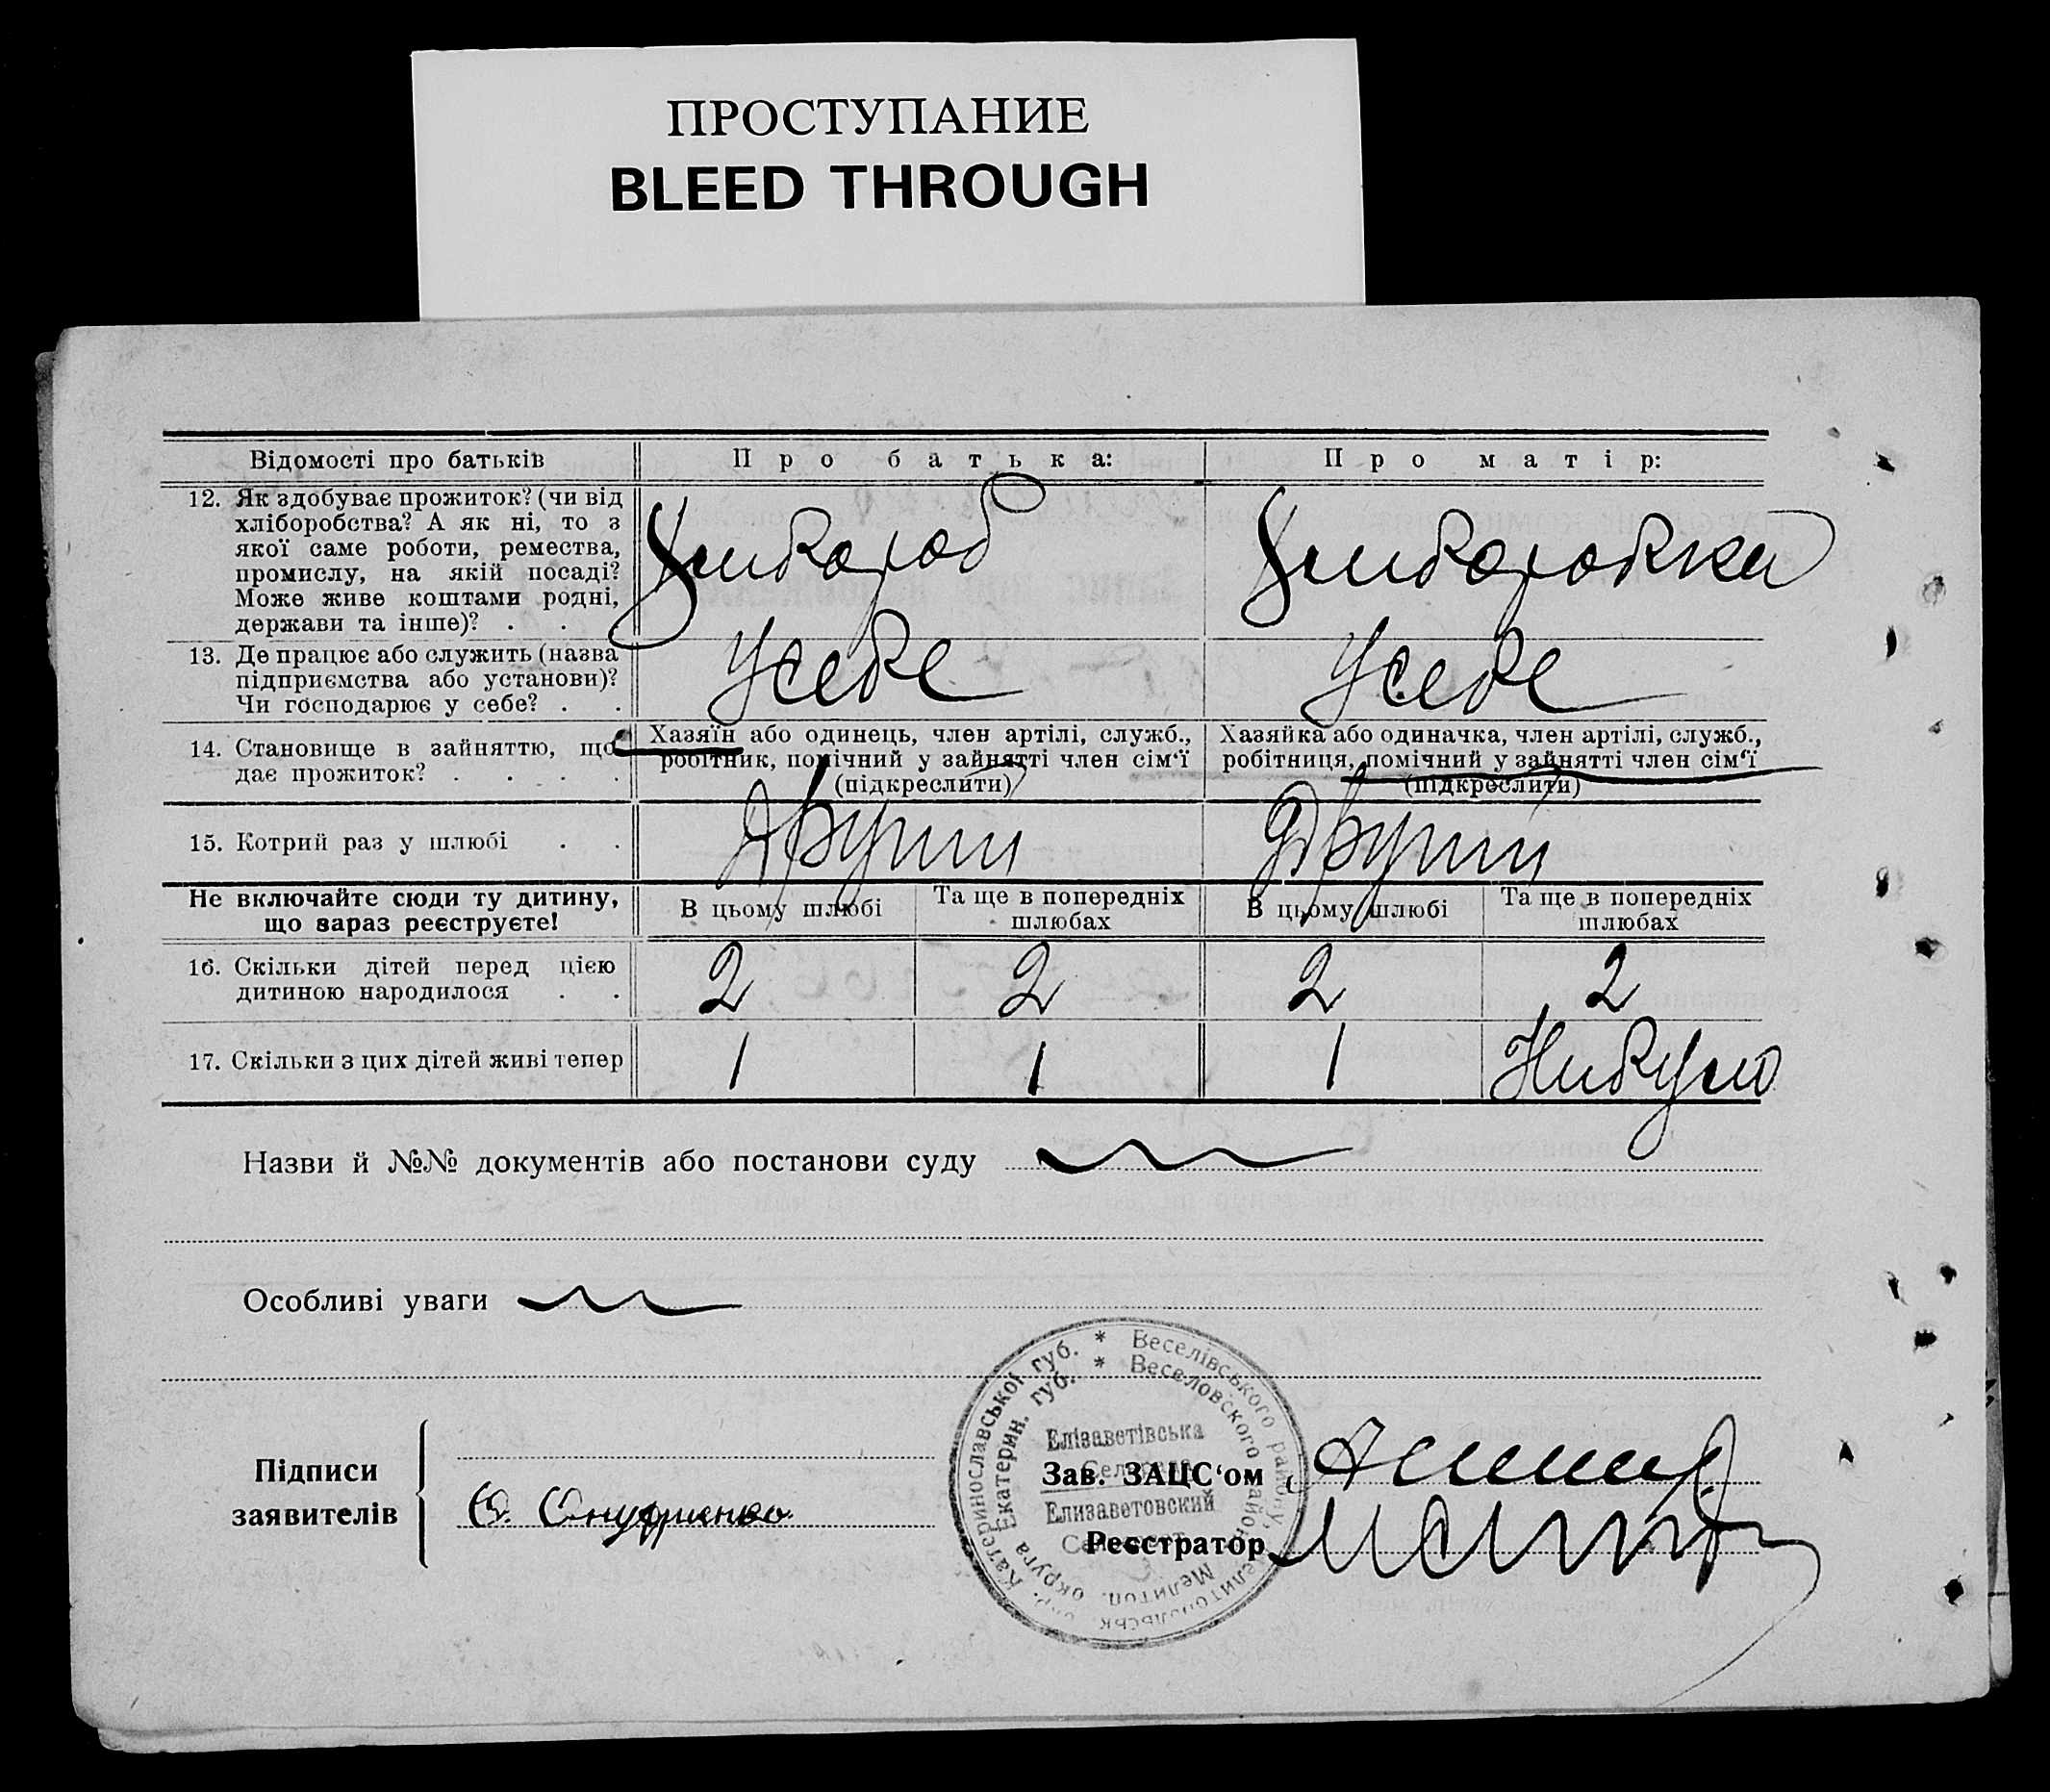 ПРОСТУПАНИЕ
BLEED THROUGH
Відомості про батьків
Про батька:
Про матір:
12. Як здобуває прожиток? (чи від
хліборобства? А як ні, то з
якої саме роботи, ремества,
промислу, на якій посаді?
Може живе коштами родні,
держави та інше)? . .
Хлібороб
Хліборобка
13. Де працює або служить (назва
підприємства або установи)?
Чи господарює у себе? . .
У себе
У себе
14. Становище в зайняттю, що
дає прожиток? . . . .
Хазяїн або одинець, член артілі, служб.,
робітник, помічний у зайнятті член сім'ї
(підкреслити)
Хазяйка або одиначка, член артілі, служб.,
робітниця, помічний у зайнятті член сім'ї
(підкреслити)
15. Котрий раз у шлюбі . .
Другий
Другий
Не включайте сюди ту дитину,
що зараз реєструєте!
В цьому шлюбі
Та ще в попередніх
шлюбах
В цьому шлюбі
Та ще в попередніх
шлюбах
16. Скільки дітей перед цією
дитиною народилося . .
2
2
2
2
17. Скільки з цих дітей живі тепер
1
1
1
Назви й №№ документів або постанови суду
Особливі уваги
Підписи
заявителів
Зав. ЗАЦС'ом
Реєстратор
* Веселівського району, Мелітопольськ. окр. Катеринославської губ.
* Веселовского района Мелитоп. округа Екатерин. губ.
Елізаветівська
Сельрада
Елизаветовский
Сельсовет